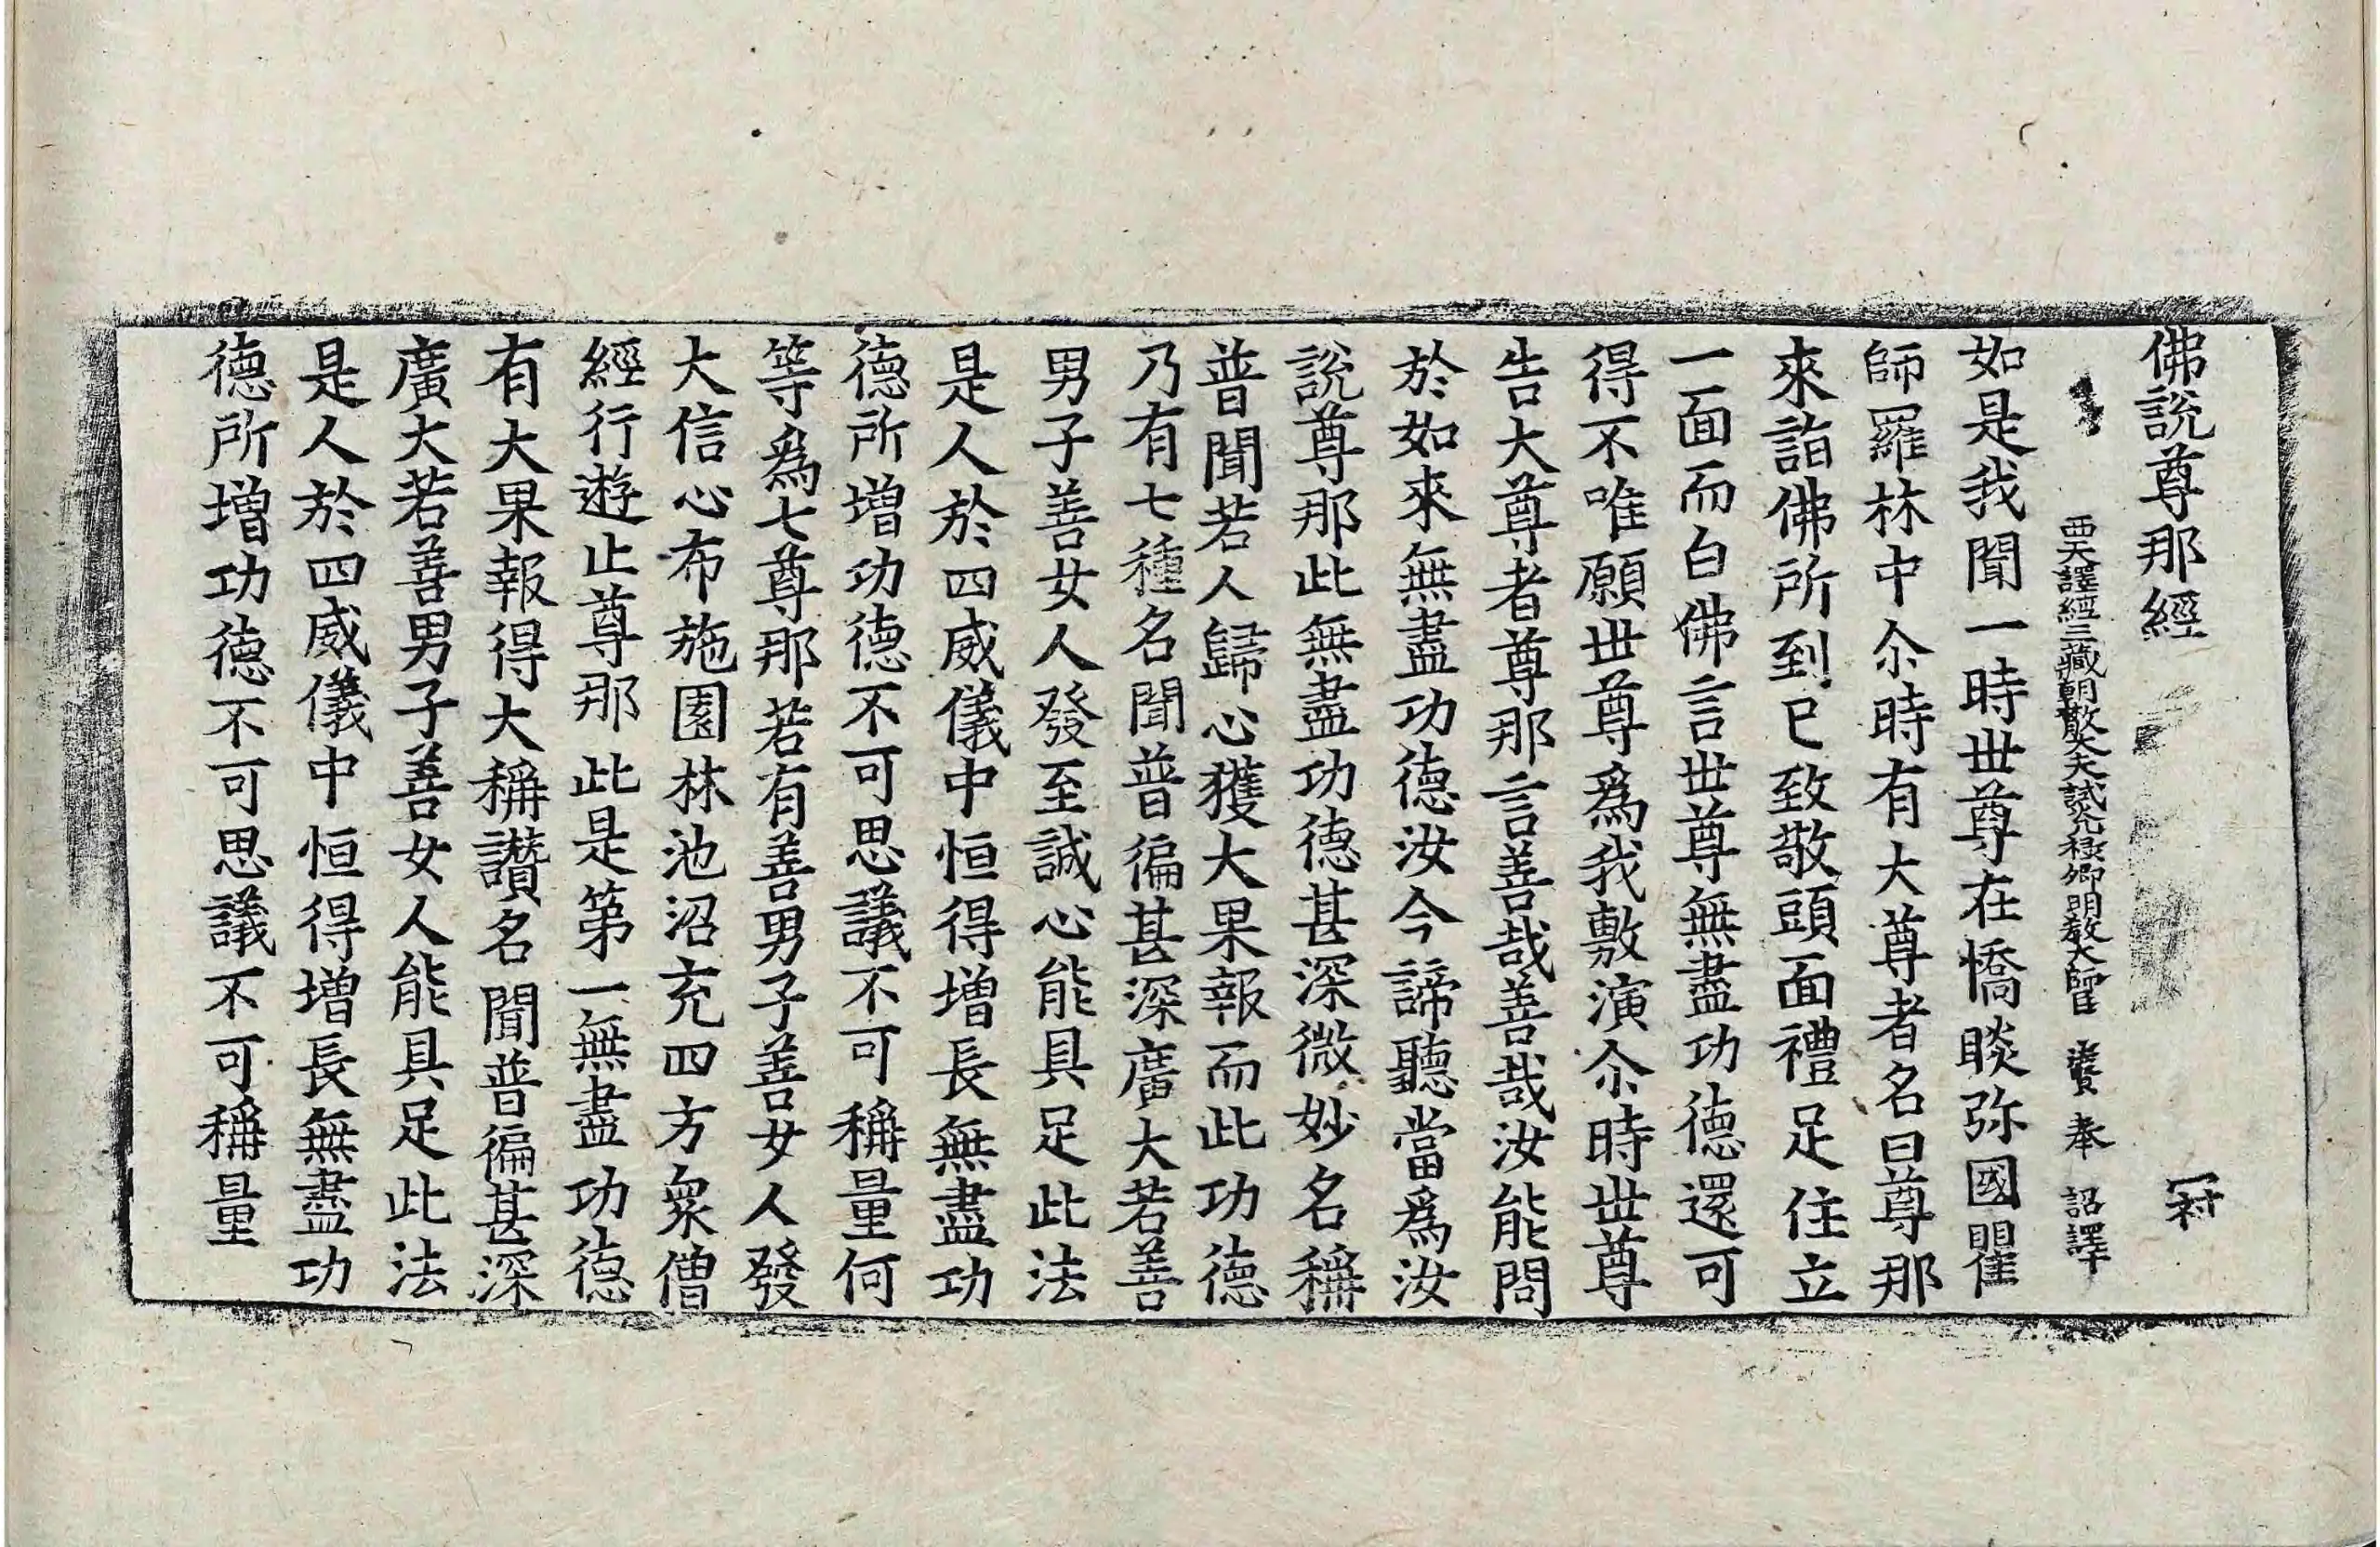 佛說尊那經 冠
西天譯經三藏朝散大夫試光祿卿明教大師臣 法賢 奉 詔譯
如是我聞一時世尊在憍睒弥國瞿
師羅林中尒時有大尊者名曰尊那
來詣佛所到已致敬頭面禮足住立
一面而白佛言世尊無盡功德還可
得不唯願世尊爲我敷演尒時世尊
告大尊者尊那言善哉善哉汝能問
於如來無盡功德汝今諦聽當爲汝
說尊那此無盡功德甚深微妙名稱
普聞若人歸心獲大果報而此功德
乃有七種名聞普徧甚深廣大若善
男子善女人發至誠心能具足此法
是人於四威儀中恒得增長無盡功
德所增功德不可思議不可稱量何
等爲七尊那若有善男子善女人發
大信心布施園林池沼充四方衆僧
經行遊止尊那此是第一無盡功德
有大果報得大稱讚名聞普徧甚深
廣大若善男子善女人能具足此法
是人於四威儀中恒得增長無盡功
德所增功德不可思議不可稱量